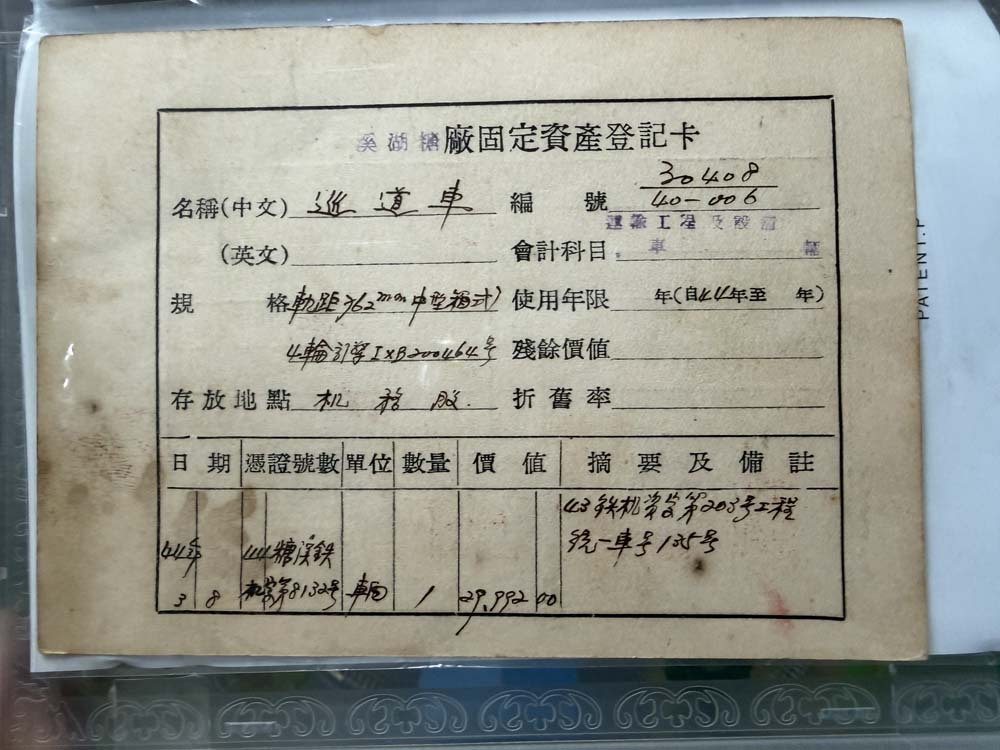 溪湖糖廠固定資產登記卡
名稱(中文) 巡道車
編號 30408
40-006
(英文)
會計科目 運輸工程及設備
車輛
規格 軌距762mm中型箱式
使用年限 年(自44年至 年)
4輪引擎IXB200464号
殘餘價值
存放地點 机務股
折舊率
日期 憑證號數 單位 數量 價值 摘要及備註
43鉄机 第203号工程
統一車号135号
44年 44糖溪鉄
3 8 机 第8132号 車両 1 29,992 00
PATENT.P